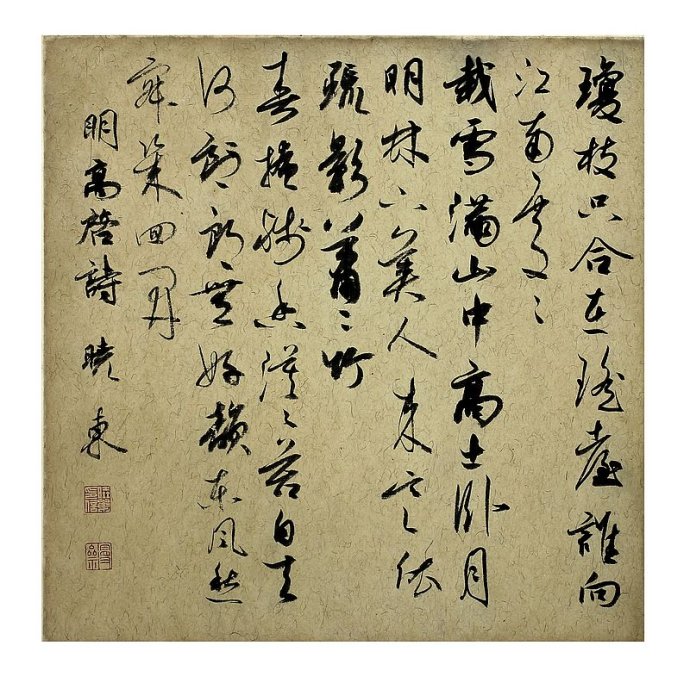 瓊枝只合在瑤臺誰向
江南處々
栽雪滿山中高士臥月
明林下美人來寒依
疏影蕭々竹
春掩殘香漠々苔自去
何郎郎無好韻東風愁
寂幾回開
明高啓詩 曉東